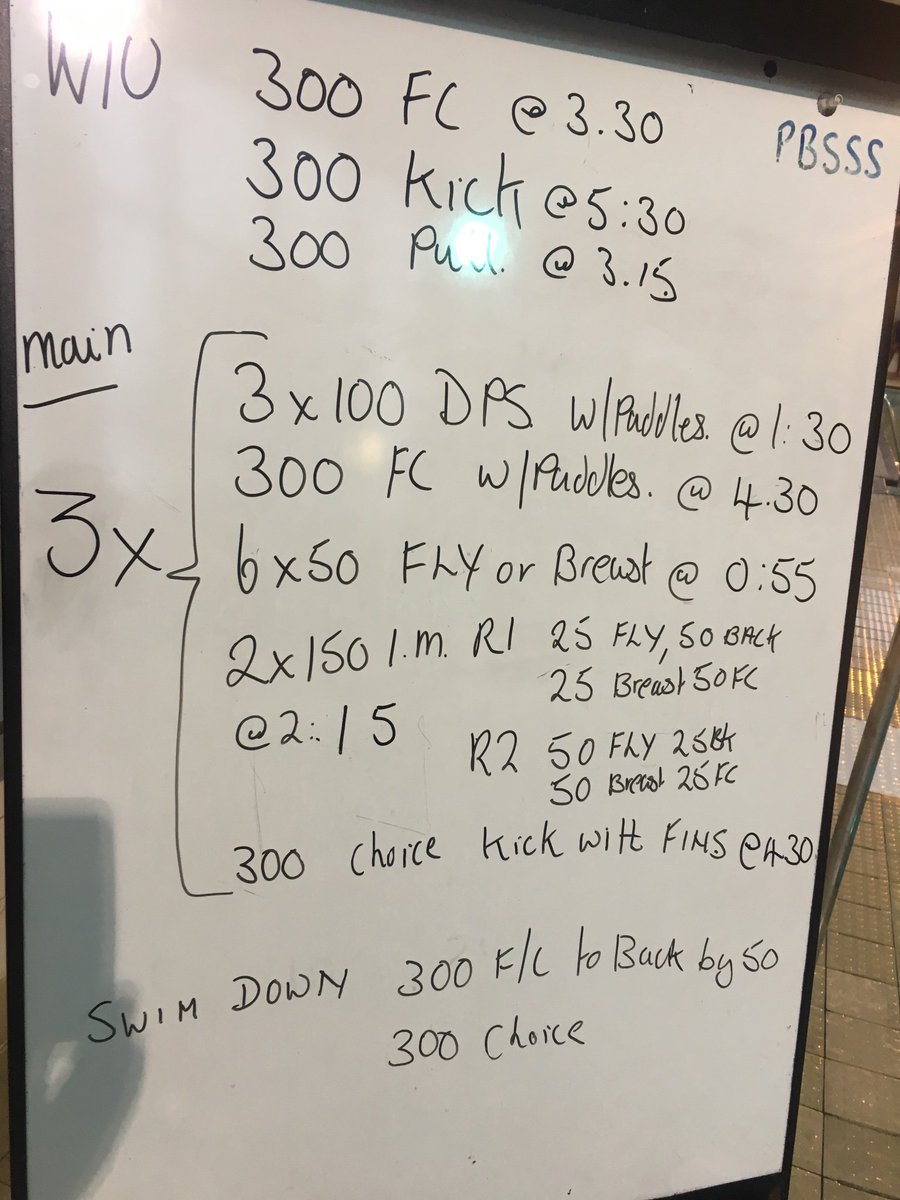 W/U 300 FC @ 3.30
PBSSS
300 Kick @ 5:30
300 Pull. @ 3.15
main
3 x 100 DPS w/Paddles. @ 1:30
300 FC w/Paddles. @ 4.30
3x
6 x 50 FLY or Breast @ 0:55
2 x 150 I.m. R1 25 FLY, 50 BACK
25 Breast 50 FC
@ 2:15
R2 50 FLY 25 Bk
50 Breast 25 FC
300 choice Kick with FINS @ 4.30
SWIM DOWN 300 F/C to Back by 50
300 Choice